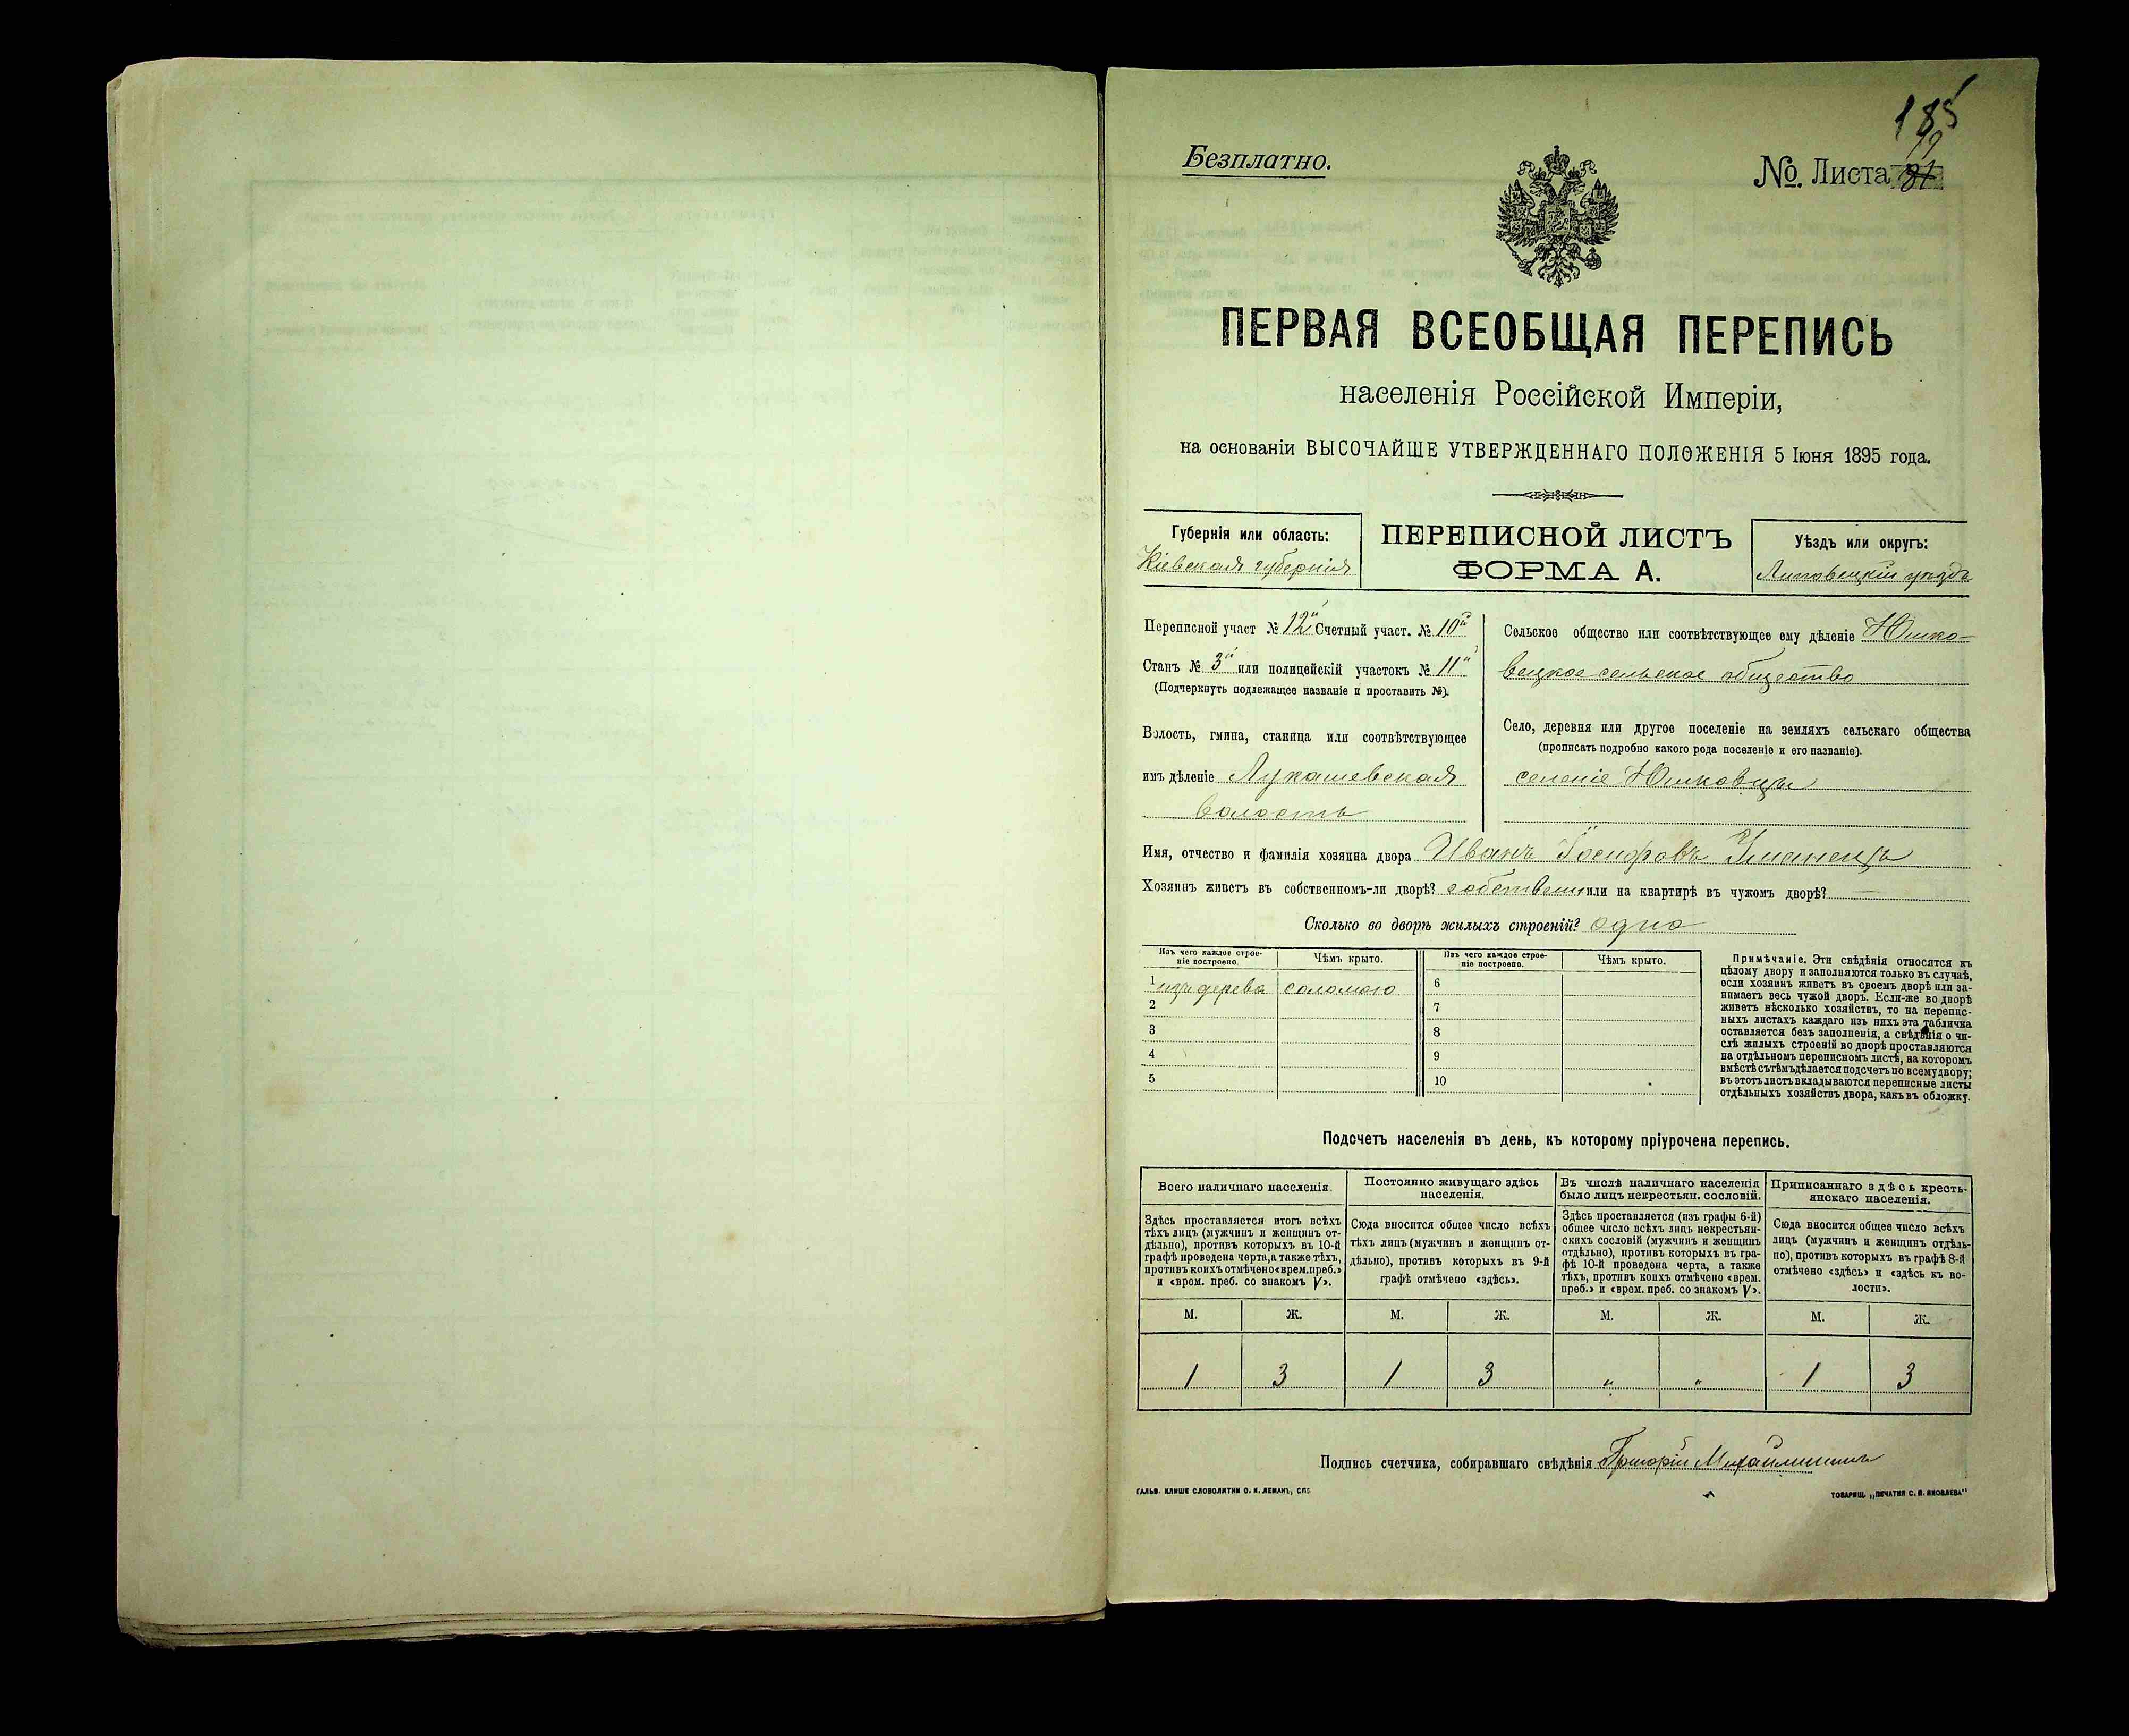 185
79
Безплатно.
№. Листа 81
ПЕРВАЯ ВСЕОБЩАЯ ПЕРЕПИСЬ
населенія Россійской Имперіи,
на основаніи ВЫСОЧАЙШЕ УТВЕРЖДЕННАГО ПОЛОЖЕНІЯ 5 Іюня 1895 года.
Губернія или область:
Кіевская губернія
ПЕРЕПИСНОЙ ЛИСТЪ
ФОРМА А.
Уѣздъ или округъ:
Липовецкій уѣздъ
Переписной участ № 12й Счетный участ. № 10й
Станъ № 3й или полицейскій участокъ № 11й
(Подчеркнуть подлежащее названіе и проставить №).
Волость, гмина, станица или соотвѣтствующее
имъ дѣленіе Лукашевская
волость
Сельское общество или соотвѣтствующее ему дѣленіе Юшко-
вецкое сельское общество
Село, деревня или другое поселеніе на земляхъ сельскаго общества
(прописать подробно какого рода поселеніе и его названіе).
селеніе Юшковцы
Имя, отчество и фамилія хозяина двора Иванъ Іосифовъ Уманецъ
Хозяинъ живетъ въ собственномъ-ли дворѣ? собственн или на квартирѣ въ чужомъ дворѣ? —
Сколько во дворѣ жилыхъ строеній? одно
Изъ чего каждое строе-
ніе построено.
Чѣмъ крыто.
Изъ чего каждое строе-
ніе построено.
Чѣмъ крыто.
1 изъ дерева соломою 6
2 7
3 8
4 9
5 10
Примѣчаніе. Эти свѣдѣнія относятся къ
цѣлому двору и заполняются только въ случаѣ,
если хозяинъ живетъ въ своемъ дворѣ или за-
нимаетъ весь чужой дворъ. Если-же во дворѣ
живетъ нѣсколько хозяйствъ, то на перепис-
ныхъ листахъ каждаго изъ нихъ эта табличка
оставляется безъ заполненія, а свѣдѣнія о чи-
слѣ жилыхъ строеній во дворѣ проставляются
на отдѣльномъ переписномъ листѣ, на которомъ
вмѣстѣ съ тѣмъ дѣлается подсчетъ по всему двору;
въ этотъ листъ вкладываются переписные листы
отдѣльныхъ хозяйствъ двора, какъ въ обложку.
Подсчетъ населенія въ день, къ которому пріурочена перепись.
Всего наличнаго населенія.
Здѣсь проставляется итогъ всѣхъ
тѣхъ лицъ (мужчинъ и женщинъ от-
дѣльно), противъ которыхъ въ 10-й
графѣ проведена черта, а также тѣхъ,
противъ коихъ отмѣчено «врем. преб.»
и «врем. преб. со знакомъ V».
Постоянно живущаго здѣсь
населенія.
Сюда вносится общее число всѣхъ
тѣхъ лицъ (мужчинъ и женщинъ от-
дѣльно), противъ которыхъ въ 9-й
графѣ отмѣчено «здѣсь».
Въ числѣ наличнаго населенія
было лицъ некрестьян. сословій.
Здѣсь проставляется (изъ графы 6-й)
общее число всѣхъ лицъ некрестьян-
скихъ сословій (мужчинъ и женщинъ
отдѣльно), противъ которыхъ въ гра-
фѣ 10-й проведена черта, а также
тѣхъ, противъ коихъ отмѣчено «врем.
преб.» и «врем. преб. со знакомъ V».
Приписаннаго здѣсь кресть-
янскаго населенія.
Сюда вносится общее число всѣхъ
лицъ (мужчинъ и женщинъ отдѣль-
но), противъ которыхъ въ графѣ 8-й
отмѣчено «здѣсь» и «здѣсь къ во-
лости».
М. Ж. М. Ж. М. Ж. М. Ж.
1 3 1 3 " " 1 3
Подпись счетчика, собиравшаго свѣдѣнія Григорій Михайлишинъ
ГАЛЬВ. КЛИШЕ СЛОВОЛИТНИ О. И. ЛЕМАНЪ, СПБ.
ТОВАРИЩ. „ПЕЧАТНЯ С. П. ЯКОВЛЕВА"